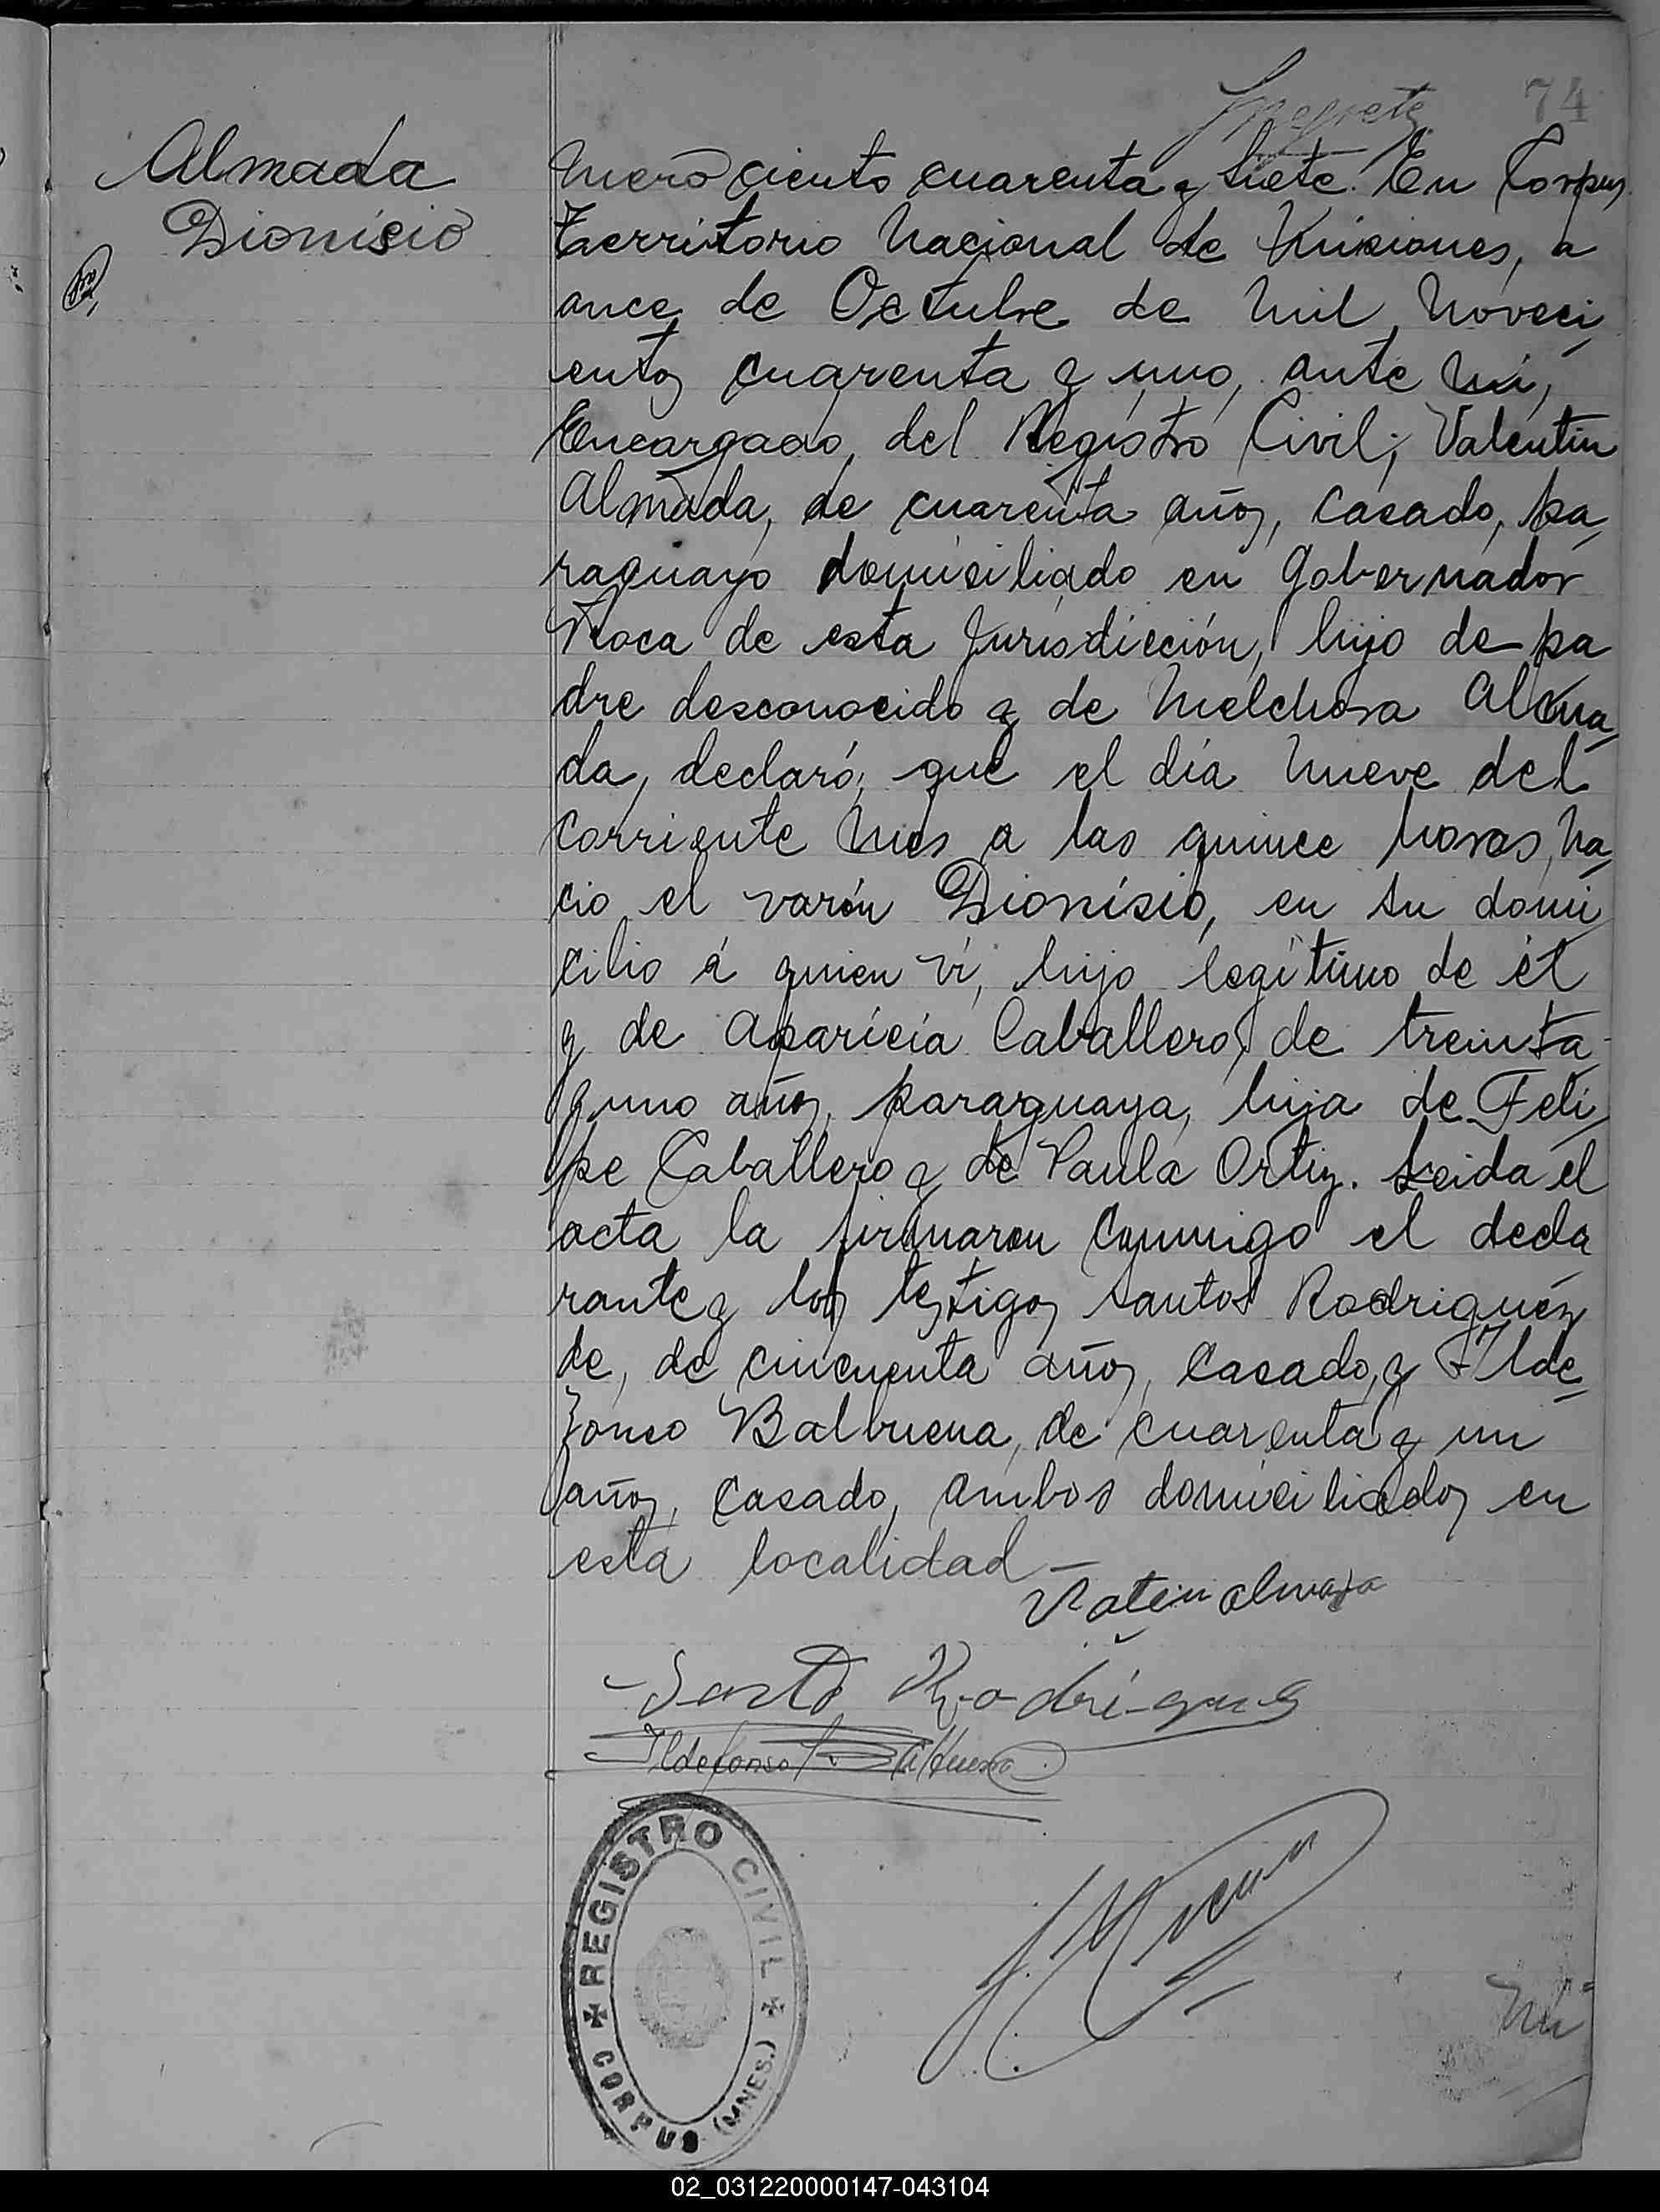 74
Almada
Dionisio
mero ciento cuarenta y siete. En Corpus
Territorio Nacional de Misiones, a
once de Octubre de mil noveci
entos cuarenta y uno, ante mí,
Encargado del Registro Civil; Valentin
Almada, de cuarenta años, casado, pa
raguayo domiciliado en Gobernador
Roca de esta Jurisdicción, hijo de pa
dre desconocido y de Melchora Alma
da, declaró: que el día nueve del
corriente mes a las quince horas, na
cio el varón Dionisio, en su domi
cilio á quien ví, hijo legítimo de él
y de Aparicia Caballero, de treinta
y uno años, paraguaya, hija de Feli
pe Caballero y de Paula Ortiz. Leida el
acta la firmaron conmigo el decla
rante y los testigos Santos Rodriguez
de, de cincuenta años, casado, y Ilde
fonso Balbuena, de cuarenta y un
años, casado, ambos domiciliados en
esta localidad—
Vatin almada
Santo Rodrigues
Ildefonso Balbuena
REGISTRO CIVIL
CORPUS (MNES.)
Nú
02_031220000147-043104